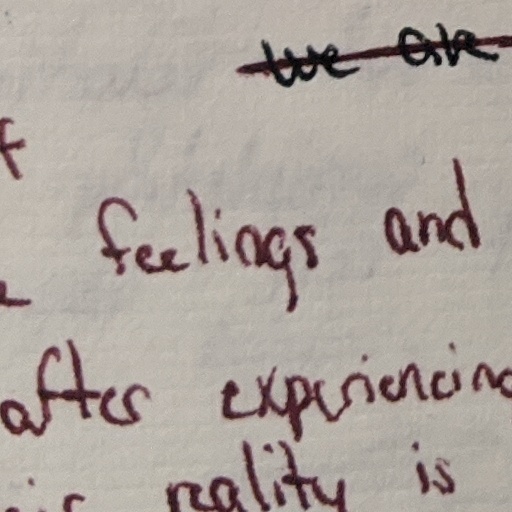 we are
feelings and
after experiencing
reality is